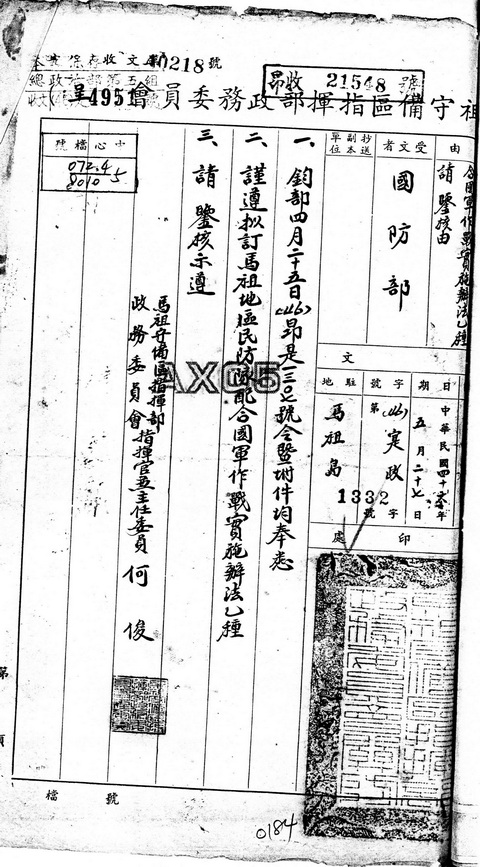 本案保存收文第0218號
總政治部第五組
昂收 21548 號
祖守備區指揮部政務委員會
吳4951
由
合國軍作戰實施辦法乙種
請鑒核由
受文者
國防部
抄送副本單位
文
日期
中華民國四十六年
五月二十七日
字號
(46)寔政
第1332號
字
駐地
馬祖島
印處
一、鈞部四月二十五日(46)昂是一三〇七號令暨附件均奉悉
二、謹遵拟訂馬祖地區民防隊配合國軍作戰實施辦法乙種
三、請鑒核示遵
馬祖守備區指揮部
政務委員會
指揮官兼主任委員 何俊
中心檔號
072.4
8010-5
AXC5
第 頁
檔號
0184